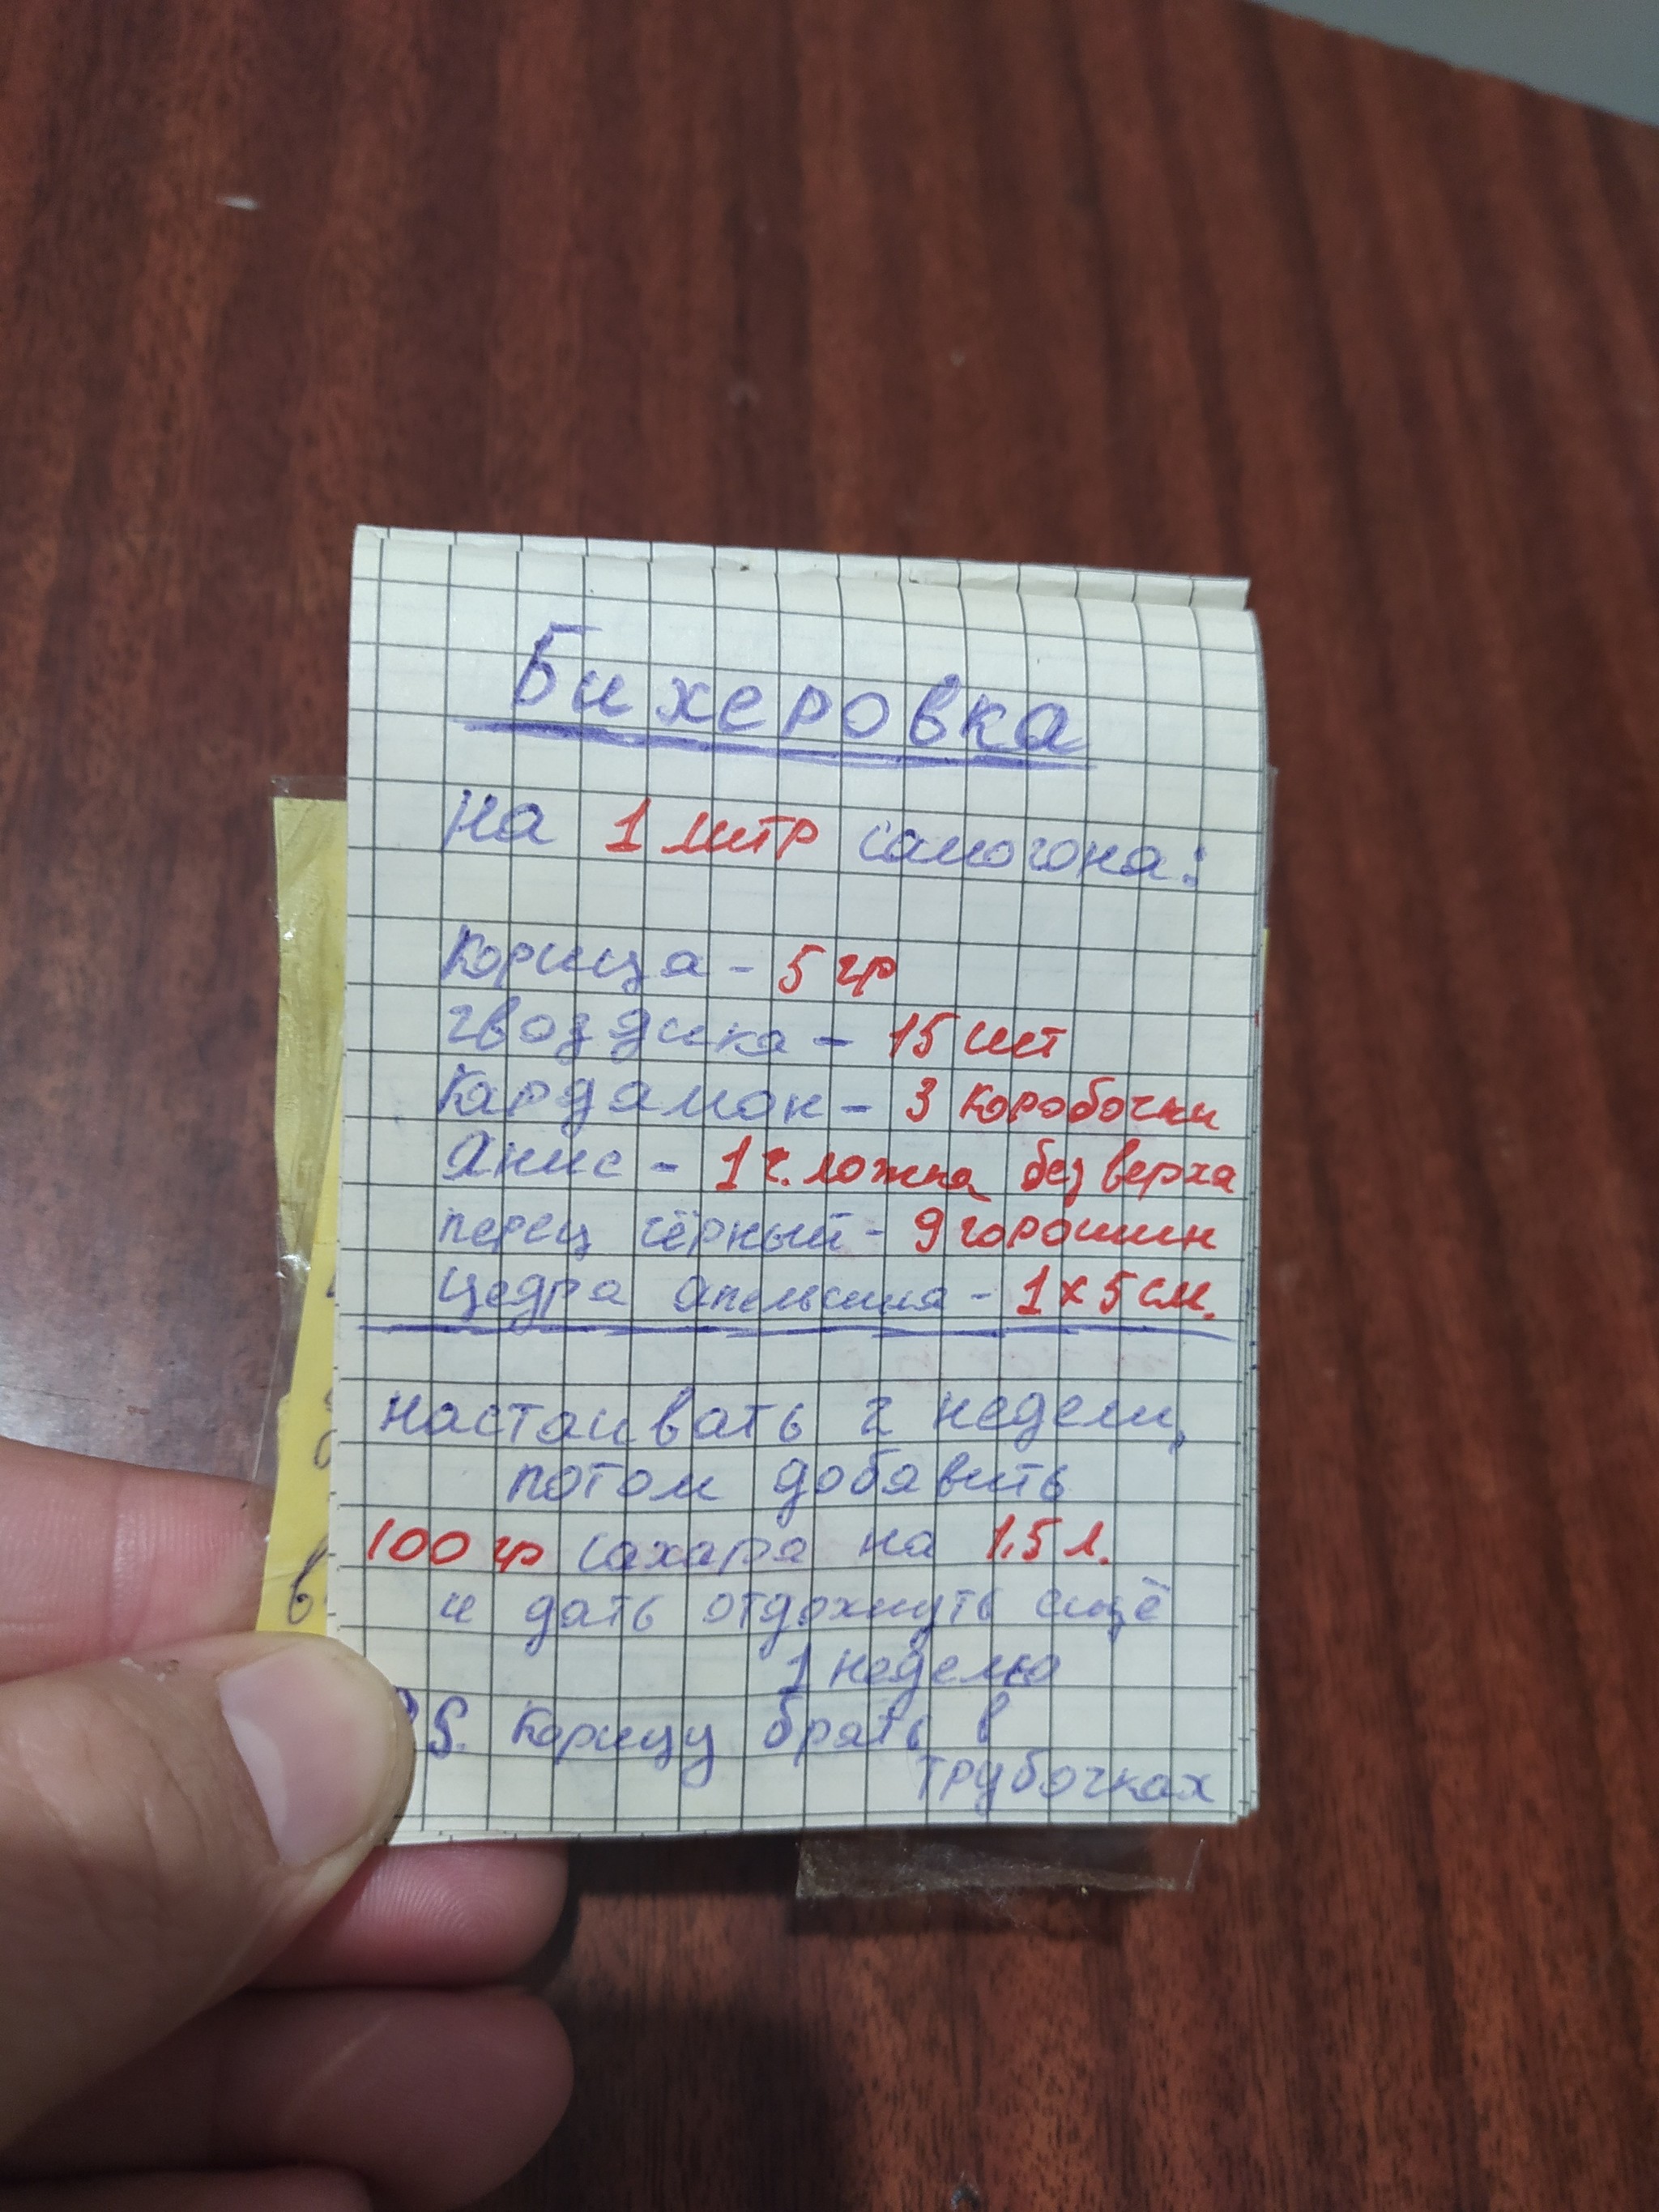 Бихеровка
на 1 литр самогона:
Корица - 5 гр
гвоздика - 15 шт
Кардамон - 3 коробочки
Анис - 1 ч. ложка без верха
перец чёрный - 9 горошин
Цедра апельсина - 1 х 5 см.
настаивать 2 недели,
потом добавить
100 гр сахара на 1,5 л.
и дать отдохнуть ещё
1 неделю
PS. Корицу брать в
трубочках